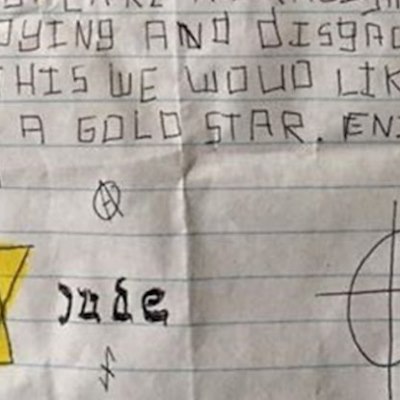 DYING AND DISGRAC
THIS WE WOUD LIK
A GOLD STAR. ENJ
Jude